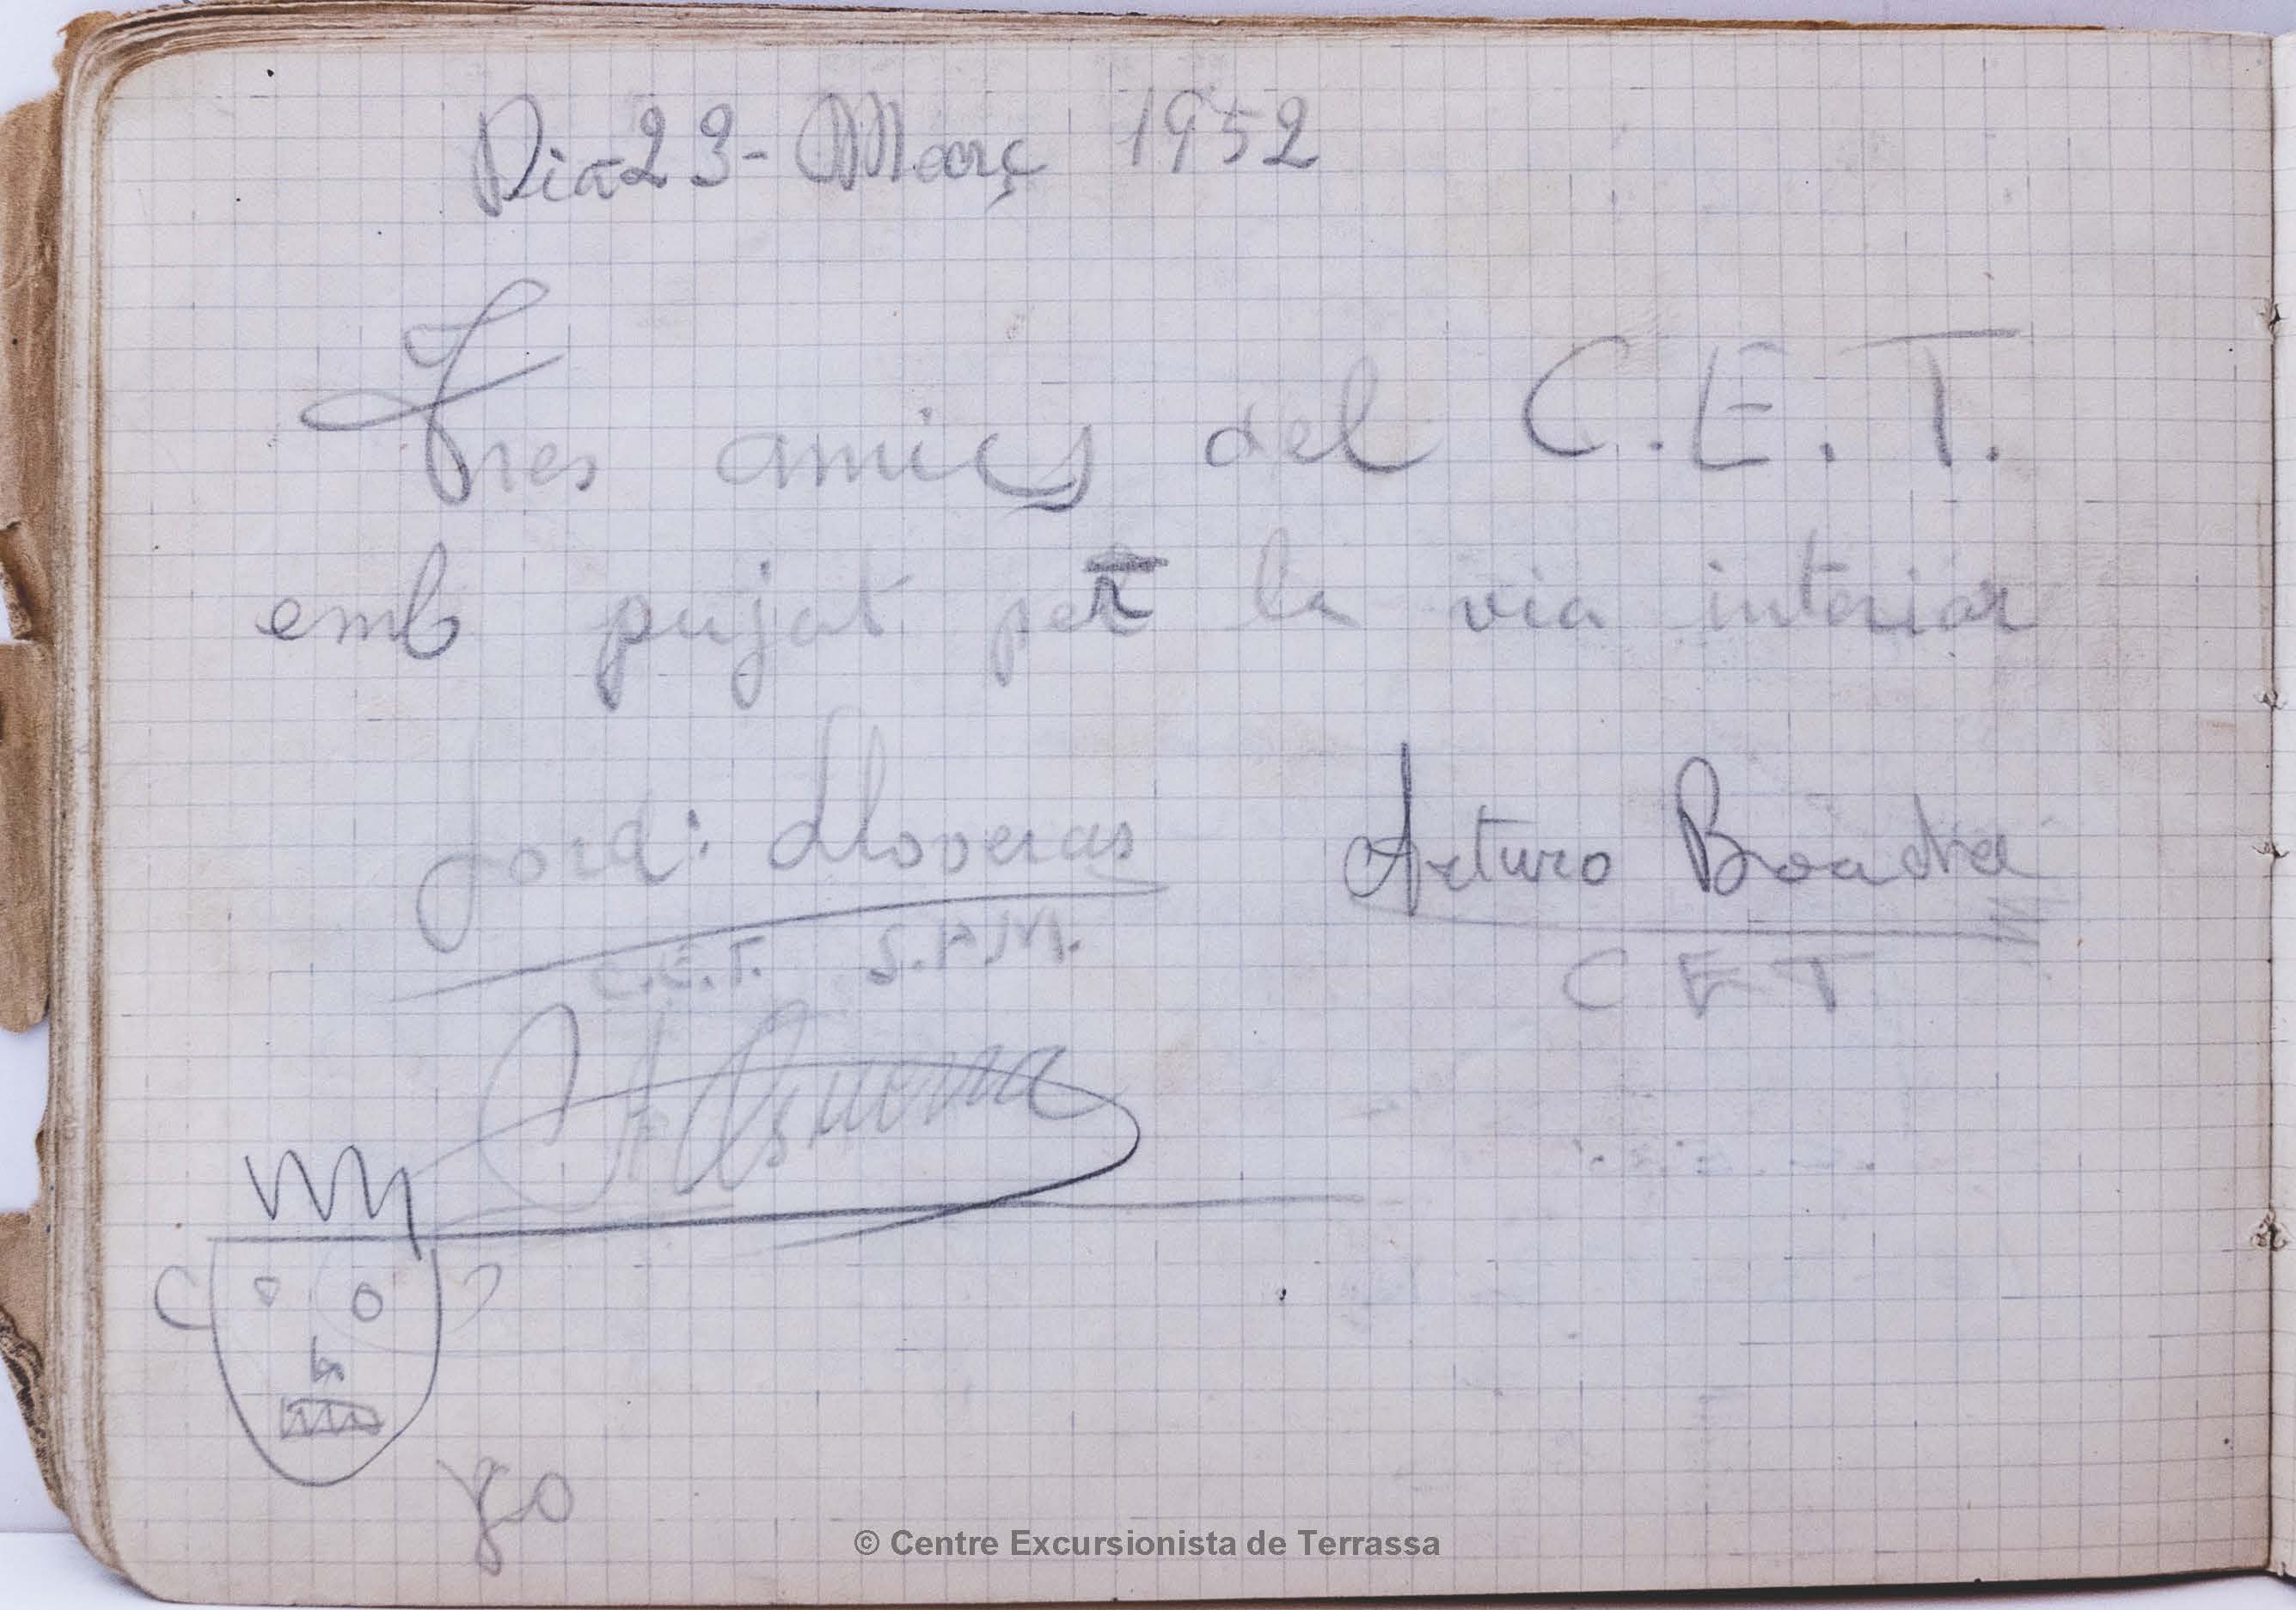 Dia 23 - Març 1952
Tres amics del C.E.T.
emb pujat per la via interior
Jordi Lloveras
Arturo Boadella
C.E.T. S.A.M.
C E T
yo
© Centre Excursionista de Terrassa